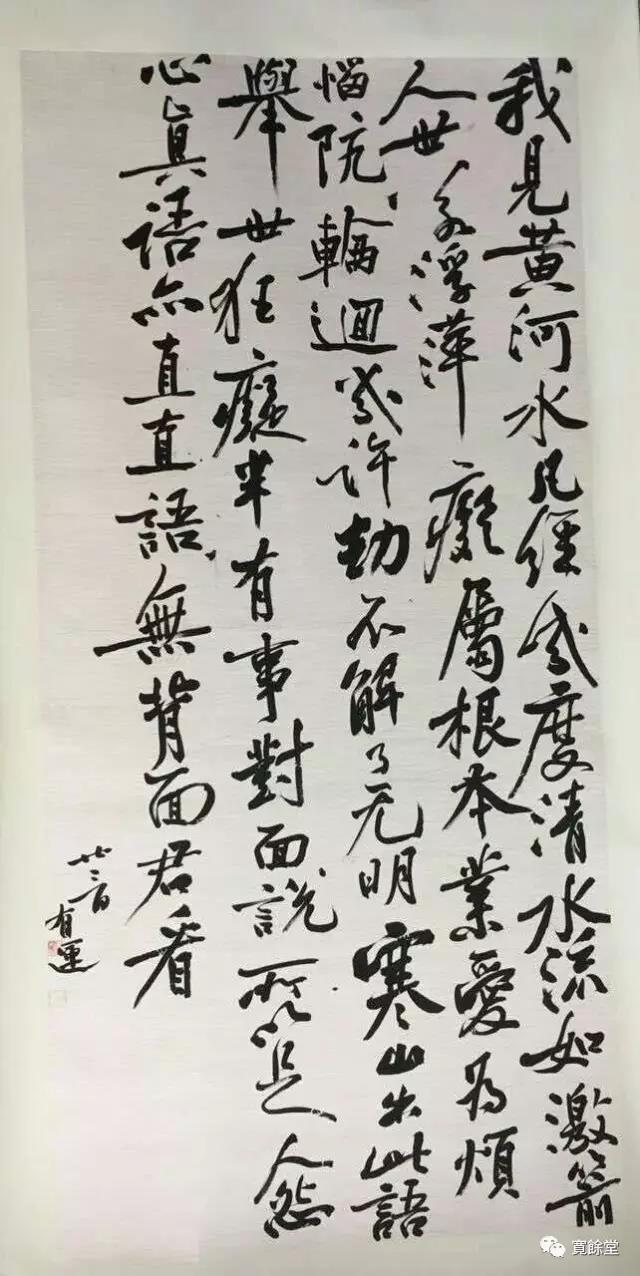 我見黃河水凡經幾度清水流如激箭
人世若浮萍癡屬根本業愛為煩
惱阬輪迴幾許劫不解了无明寒山出此語
舉世狂癡半有事對面說所以足人怨
心真語亦直直語無背面君看
有運
寬餘堂